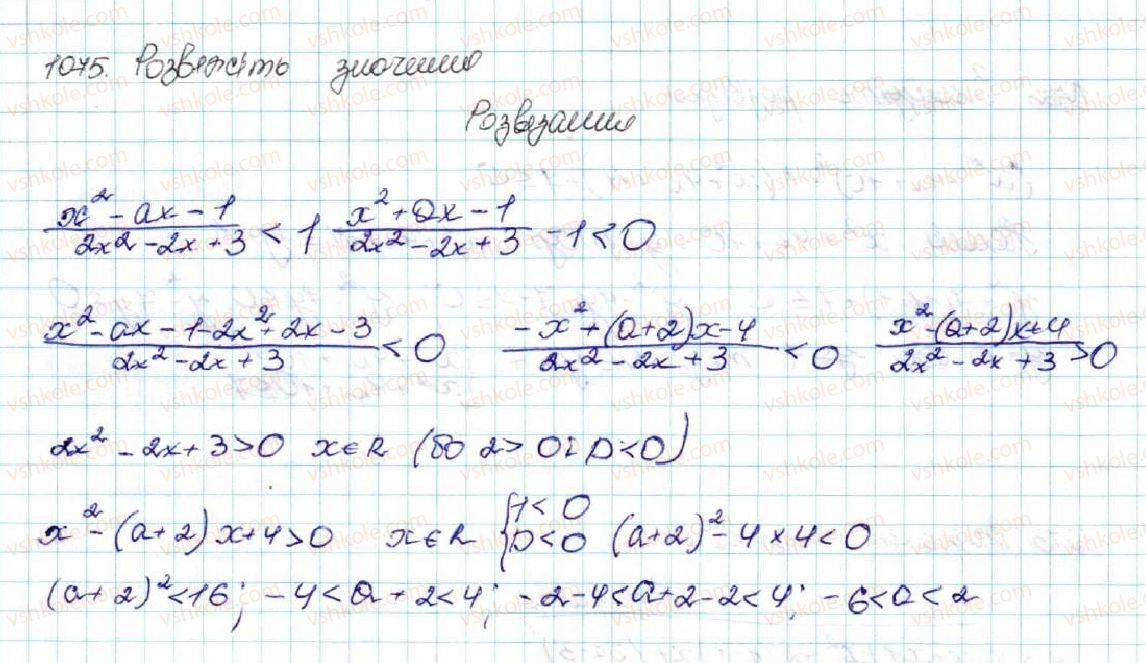 1075. Розв'яжіть значимо
Розвязання
x² - ax - 1 / 2x² - 2x + 3 < 1 x² + ax - 1 / 2x² - 2x + 3 - 1 < 0
x² - ax - 1 - 2x² + 2x - 3 / 2x² - 2x + 3 < 0 -x² + (a+2)x - 4 / 2x² - 2x + 3 < 0 x² - (a+2)x + 4 / 2x² - 2x + 3 > 0
2x² - 2x + 3 > 0 x ∈ R (бо 2 > 0 і D < 0)
x² - (a+2)x + 4 > 0 x ∈ R { 1 < 0 D < 0 (a+2)² - 4 × 4 < 0
(a+2)² < 16; -4 < a + 2 < 4; -2-4 < a+2-2 < 4; -6 < a < 2